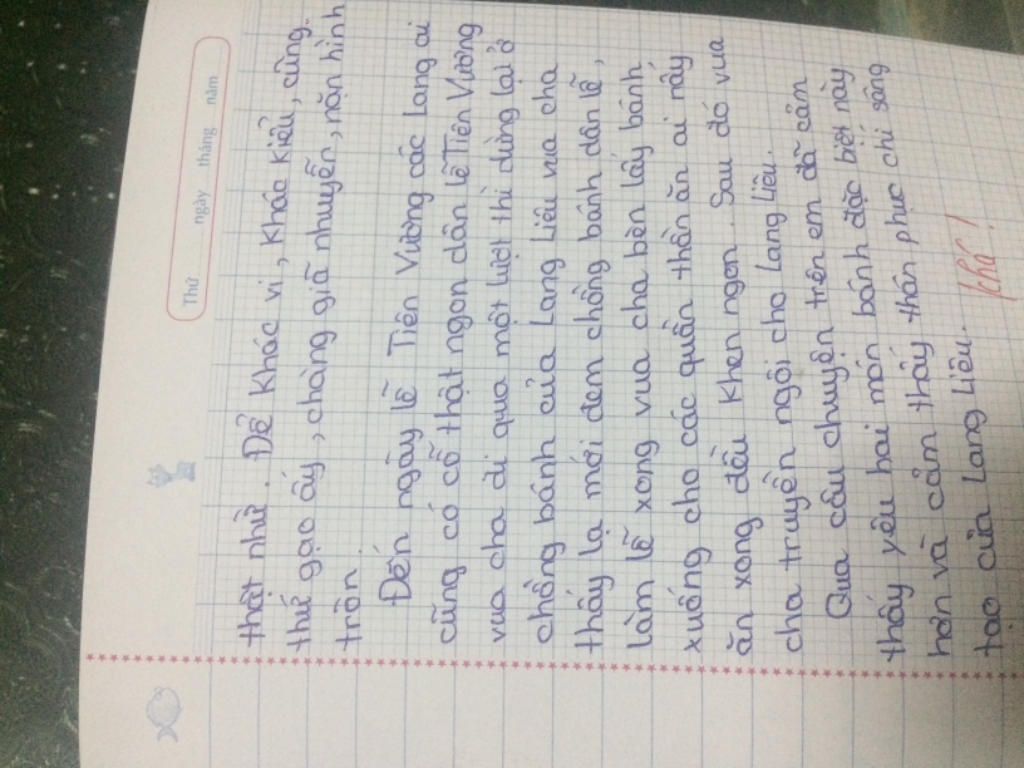 Thứ ngày tháng năm
thật nhừ. Để khác vị, khác kiểu, cũng
thứ gạo ấy, chàng giã nhuyễn, nặn hình
tròn.
Đến ngày lễ Tiên Vương các Lang ai
cũng có cỗ thật ngon dân lễ Tiên Vương
vua cha đi qua một lượt thì dừng lại ở
chồng bánh của Lang Liêu vua cha
thấy lạ mới đem chồng bánh dân lễ,
làm lễ xong vua cha bèn lấy bánh
xuống cho các quần thần ăn ai nấy
ăn xong đều khen ngon. Sau đó vua
cha truyền ngôi cho Lang Liêu.
Qua câu chuyện trên em đã cảm
thấy yêu hai món bánh đặc biệt này
hơn và cảm thấy thán phục chí sáng
tạo của Lang Liêu.
Khá!